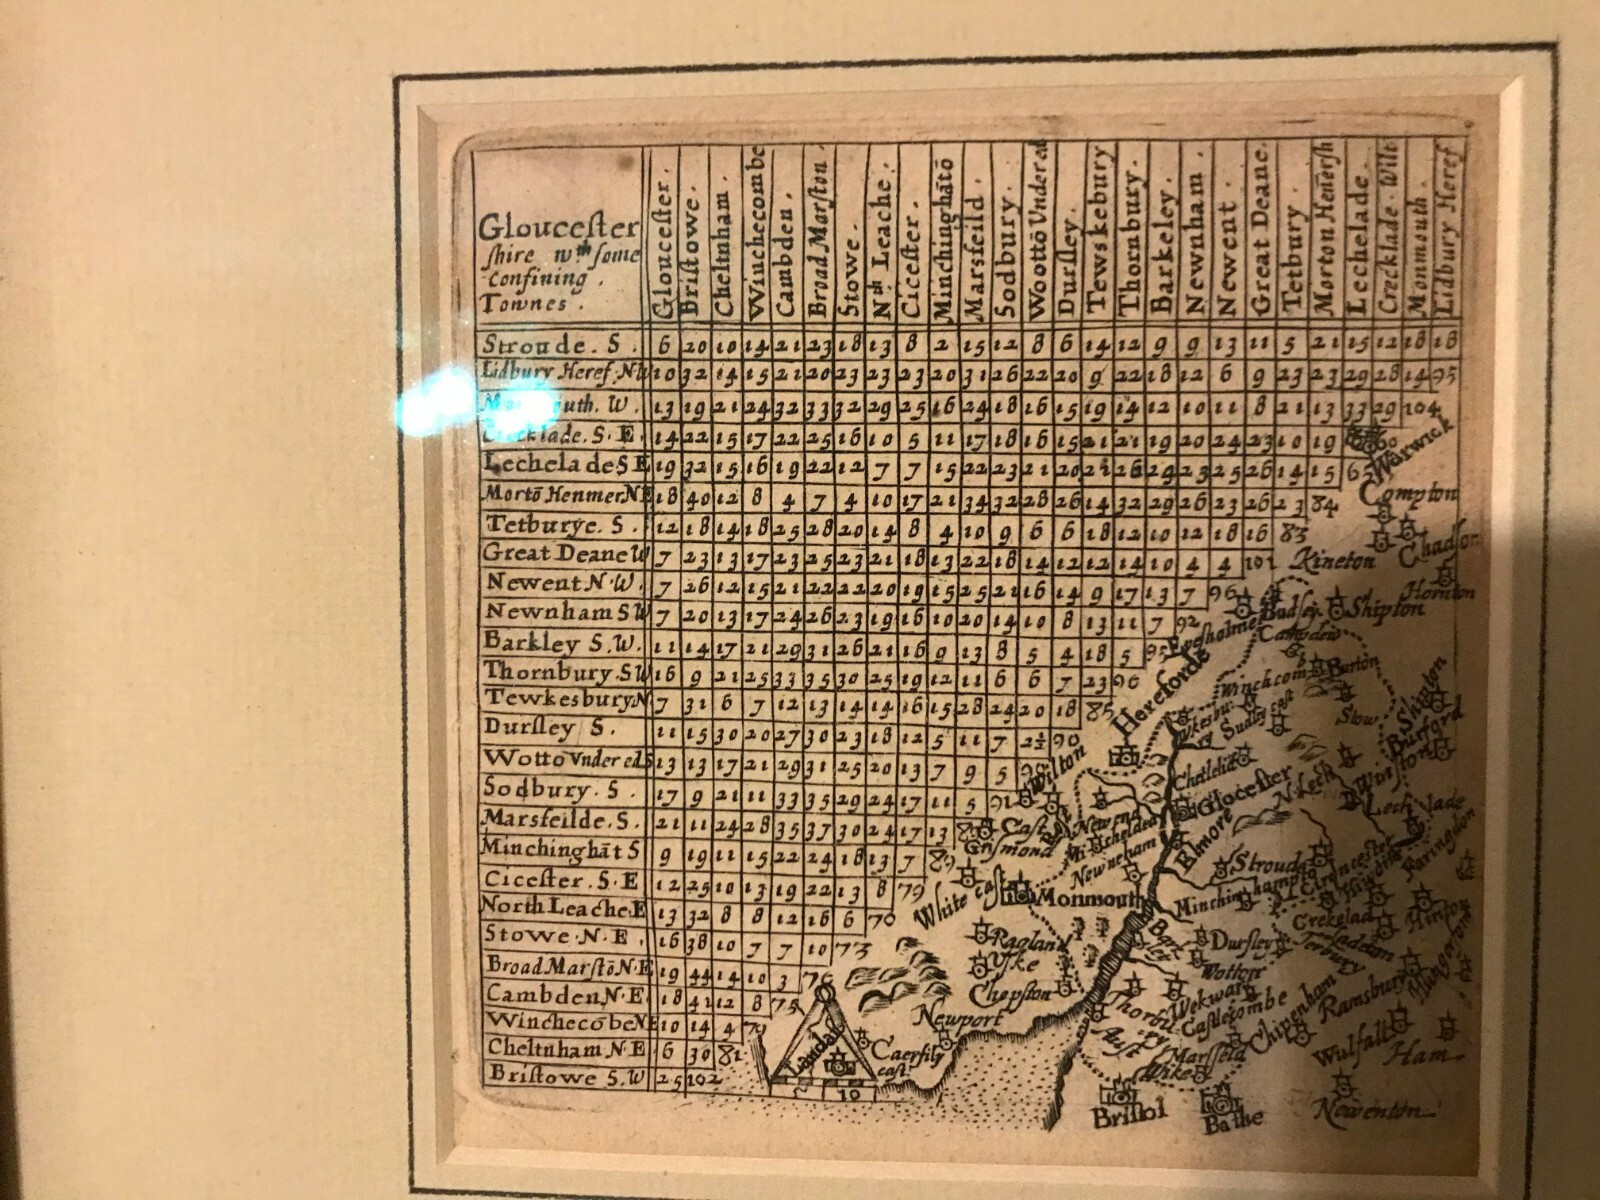 Glouceſter
ſhire wth ſome
Confining .
Townes .
Glouceſter.
Briſtowe.
Cheltnham.
Winchecombe
Cambden.
Broad Marſton.
Stowe.
Nth Leache.
Ciceſter.
Minchinghātō
Marsfeild.
Sodbury.
Woottō Vndered
Durſley.
Tewskebury
Thornbury.
Barkeley.
Newnham.
Newent.
Great Deane.
Tetbury.
Morton Henērſh
Lechelade.
Crecklade. Wilt
Monmouth.
Lidbury Heref
Stroude. S. 6 20 10 14 21 23 18 13 8 2 15 12 8 6 14 12 9 9 13 11 5 21 15 12 18 18
Lidbury Heref. N.W 10 32 14 15 21 20 23 23 23 20 31 26 22 20 9 22 18 12 6 9 23 23 29 28 14 95
uth. W. 13 19 21 24 32 33 32 29 25 16 24 18 16 15 19 14 12 10 11 8 21 13 33 29 104
lade. S. E 14 22 15 17 22 25 16 10 5 11 17 18 16 15 21 21 19 20 24 23 10 19
Lechelade S E 19 32 15 16 19 22 12 7 7 15 22 23 21 20 26 29 23 25 26 14 15 65
Mortō Henmer. N E 18 40 12 8 4 7 4 10 17 21 34 32 28 26 14 32 29 26 23 26 23 84
Tetburye. S. 12 18 14 18 25 28 20 14 8 4 10 9 6 6 18 12 10 12 18 16 83
Great Deane W 7 23 13 17 23 25 23 21 18 13 22 18 14 12 12 14 10 4 4 101
Newent N. W. 7 26 12 15 21 22 22 20 19 15 25 21 16 14 9 17 13 7 96
Newnham S W 7 20 13 17 24 26 23 19 16 10 20 14 10 8 13 11 7 92
Barkley S. W. 11 14 17 21 29 31 26 21 16 9 13 8 5 4 18 5
Thornbury. S W 16 9 21 25 33 35 30 25 19 12 11 6 6 7 23 96
Tewkesbury N 7 31 6 7 12 13 14 14 16 15 28 24 20 18 85
Durſley S. 11 15 30 20 27 30 23 18 12 5 11 7 2½ 90
Wotto Vnder ed S 13 13 17 21 29 31 25 20 13 7 9 5
Sodbury. S. 17 9 21 11 33 35 29 24 17 11 5 91
Marsfeilde. S. 21 11 24 28 35 37 30 24 17 13
Minchinghāt S 9 19 11 15 22 24 18 13 7 89
Ciceſter. S. E 12 25 10 13 19 22 13 8 79
North Leache. E 13 32 8 8 12 16 6 70
Stowe. N. E. 16 38 10 7 7 10 73
Broad Marſtō N. E 19 44 14 10 3 76
Cambden N. E. 18 41 12 8 75
Winchecōbe N E 10 14 4 79
Cheltnham N. E 6 30 81
Briſtowe S. W 25 102
Warwick
Compton
Kineton
Hornton
Shipton
Eveſholme
Burton
Hereforde
Stow
Shipton
Burford
Wilton
Gloceſter
N. Lech
Elmore
Newnham
Faringdon
Stroud
White caſt
Monmouth
Raglan
Vſke
Durſley
Chepſton
Newport
Ramsbury
Caſtlecombe
Chipenham
Landaf
Caerfily
caſt.
Auſt
Marsfeld
Wike
Wulfall
Ham
5 10
Briſtol
Bathe
Newenton